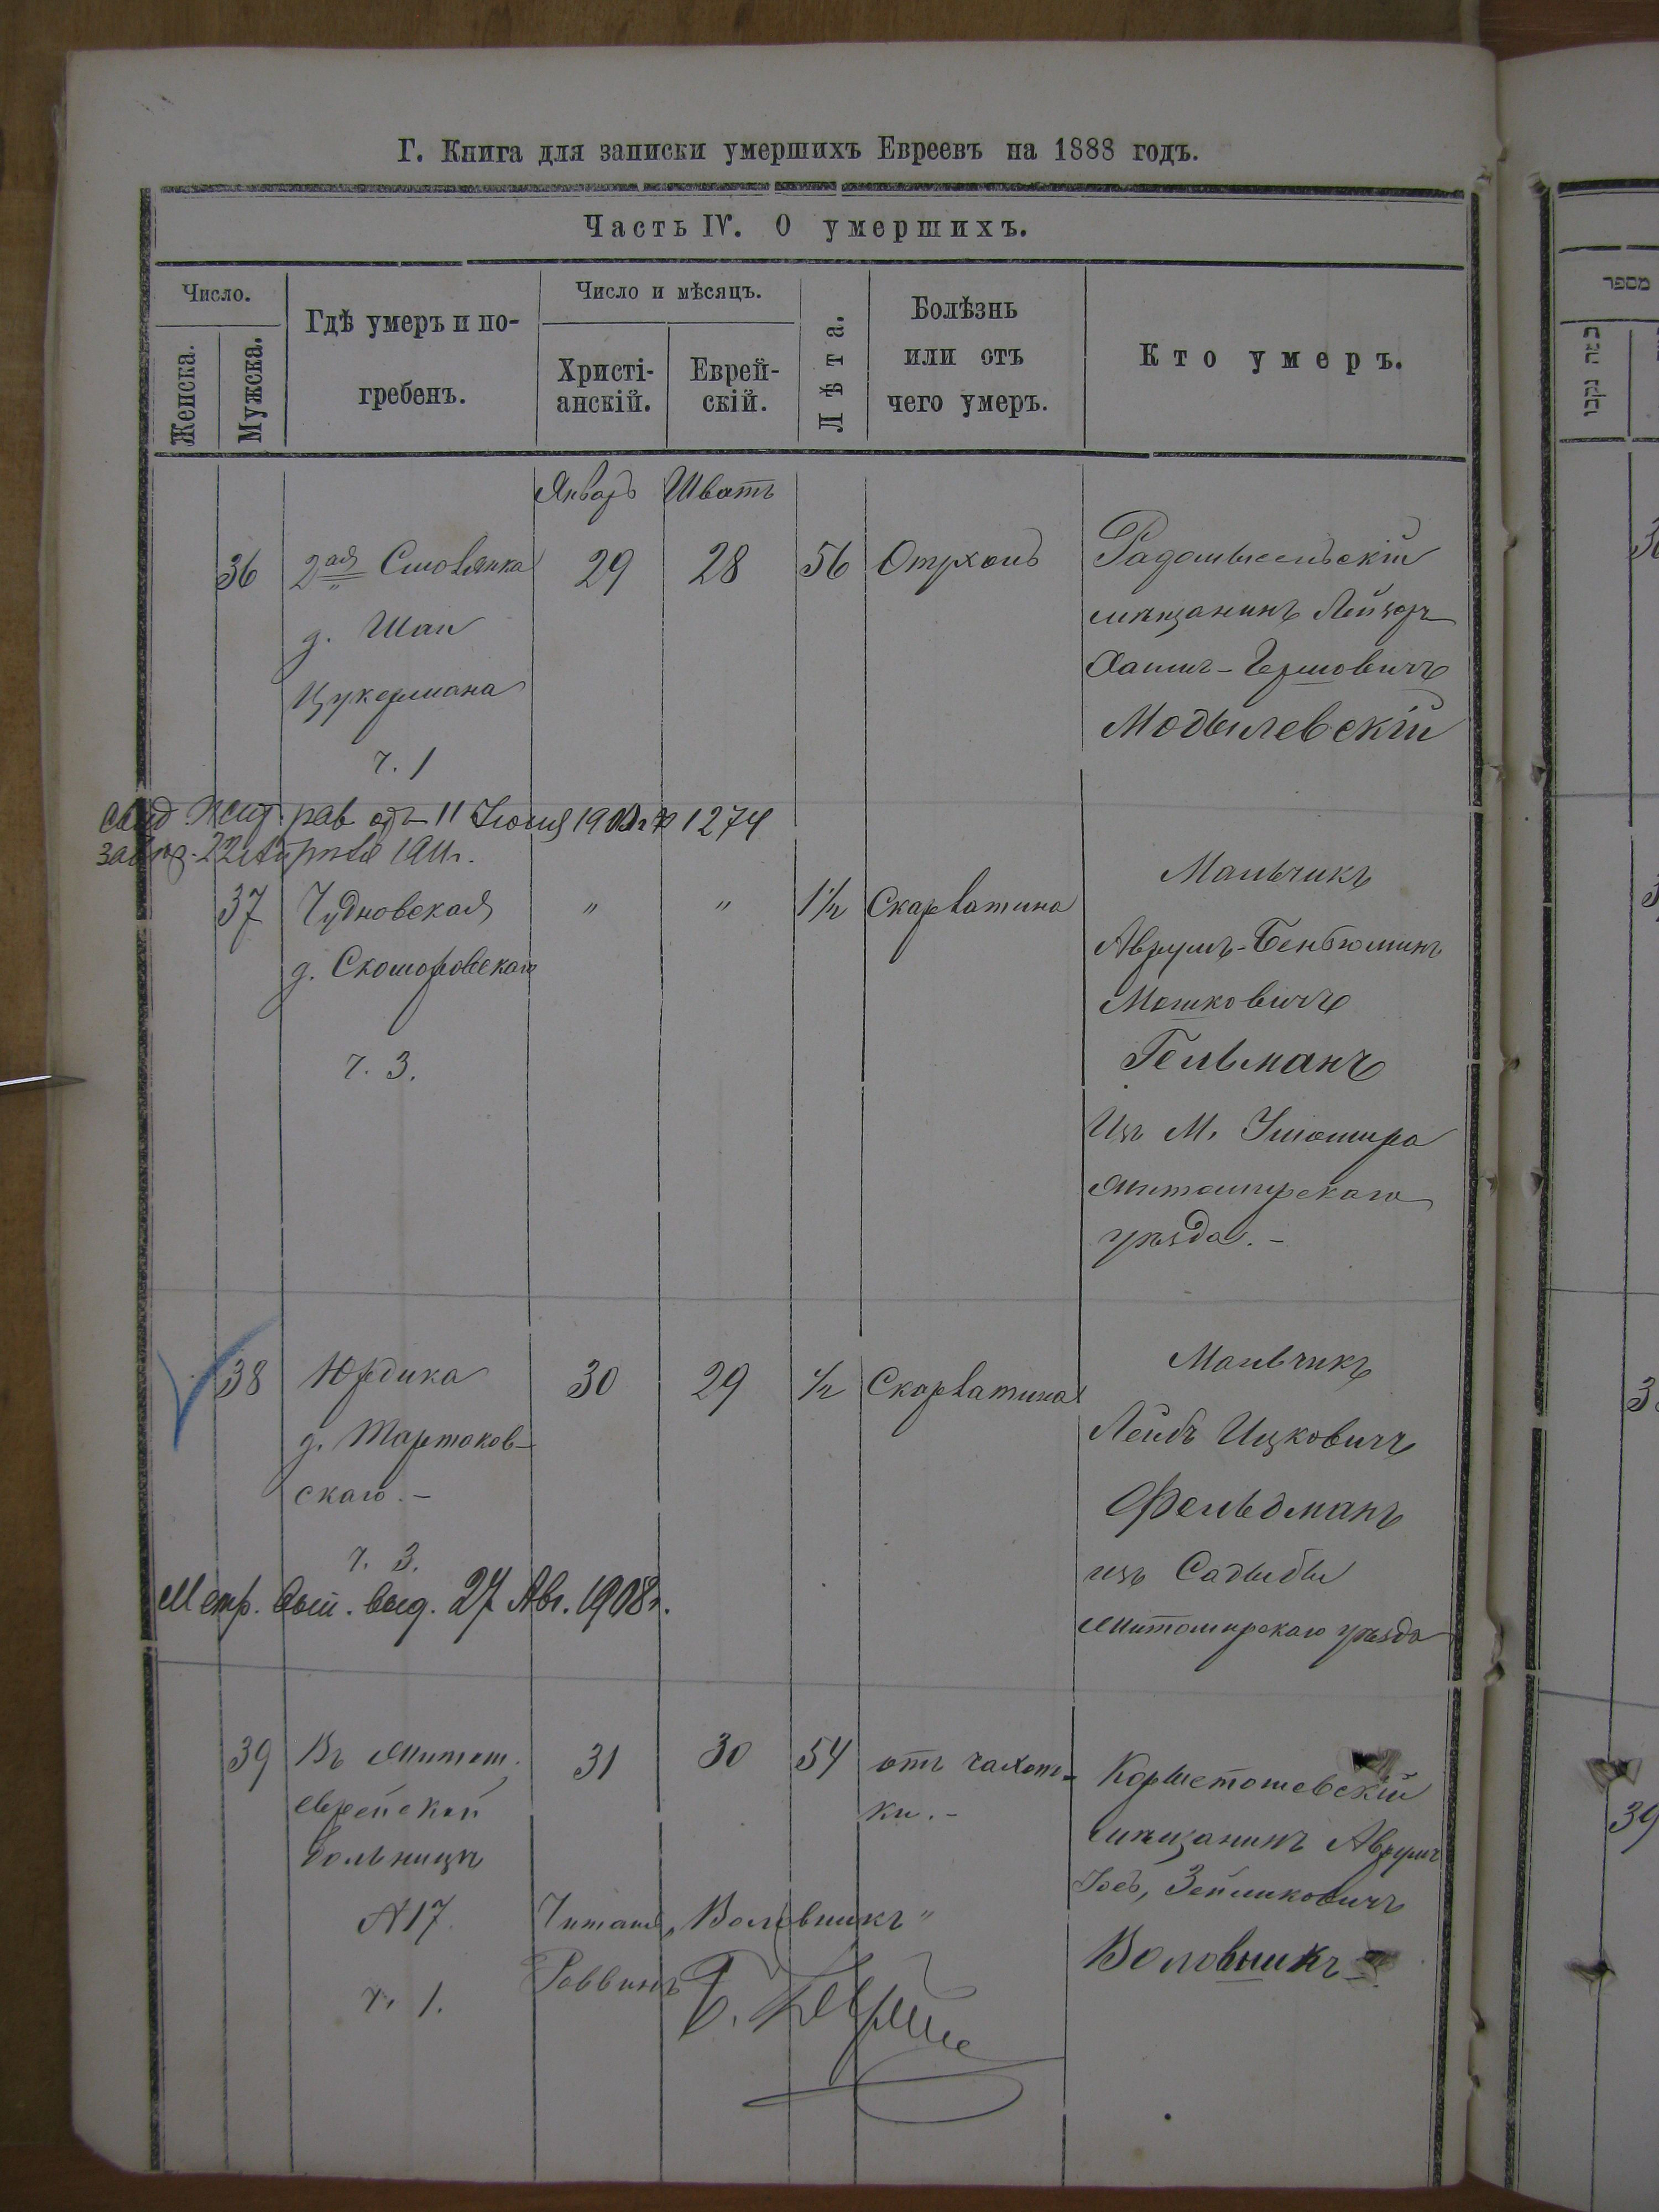 Г. Книга для записки умершихъ Евреевъ на 1888 годъ.
Часть IV. О умершихъ.
Число.
Женска.
Мужска.
Гдѣ умеръ и по-
гребенъ.
Число и мѣсяцъ.
Христі-
анскій.
Еврей-
скій.
Лѣта.
Болѣзнь
или отъ
чего умеръ.
Кто умеръ.
מספר
Январь Шватъ
36
2ая Смолянка
д. Шаи
Цукермана
ч. 1
29
28
56
Радомысльскій
мѣщанинъ Лейзоръ
Хаимъ-Гершовичъ
Модылевскій
Жит. рав отъ 11 Іюля 1274
22 Апрѣля 1911г.
37
Чудновская
д. Скоморовскаго
ч. 3.
"
"
1½
Скарлатина
Мальчикъ
Аврумъ-Беньюминъ
Мошковичъ
Гельманъ
Изъ М.
Житомирскаго
уѣзда. -
38
Юрдика
д. Тартаков-
скаго. -
ч. 3.
30
29
½
Скарлатина
Мальчикъ
Лейбъ Ицковичъ
Фельдманъ
изъ Садыбы
Житомирскаго уѣзда
Метр. вып. выд. 27 Авг. 1908г.
39
Въ Житом.
еврейской
больницѣ
№17
ч. 1.
31
30
54
отъ чахот-
ки. -
мѣщанинъ Аврумъ
Зейликовичъ
Воловникъ
Читать „Воловникъ"
Раввинъ
39